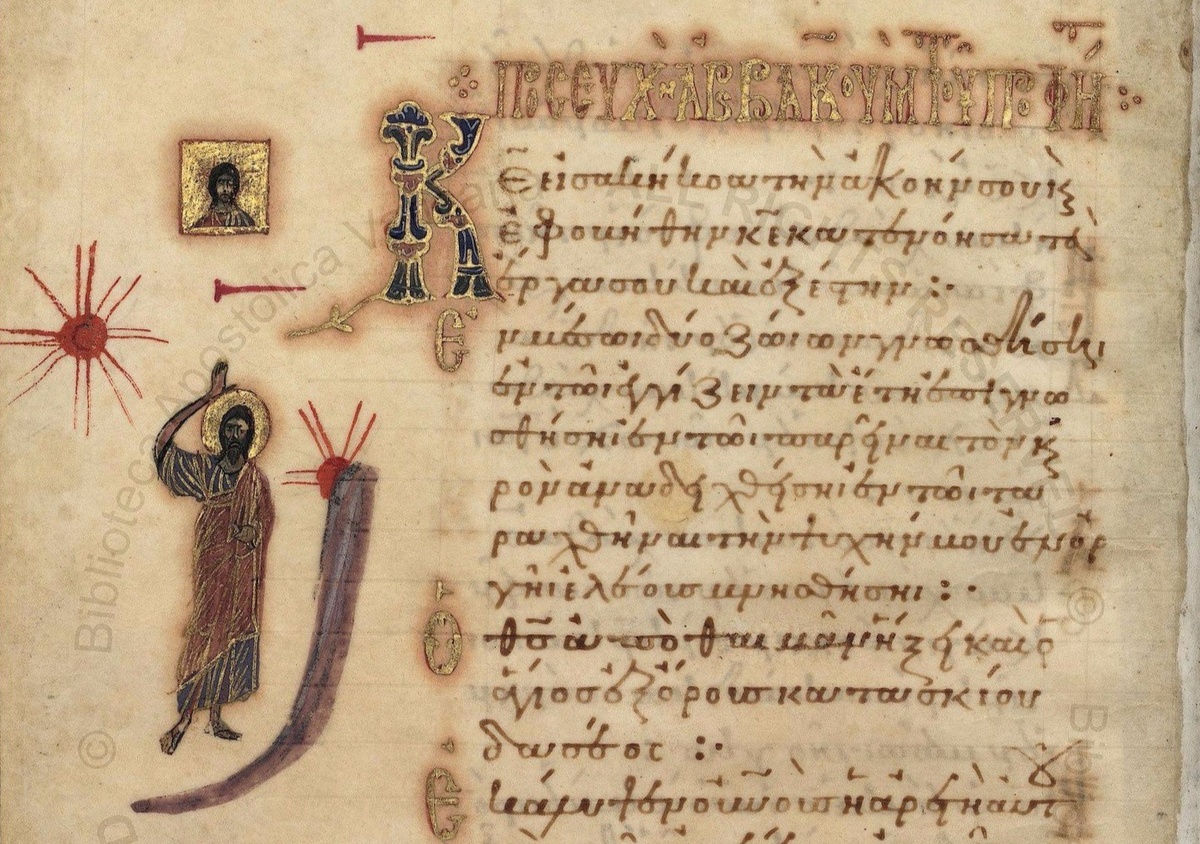 ΠΡΟΣΕΥΧ ΑΒΒΑΚΟΥΜ ΤΟΥ ΠΡΟΦΗ
Κ̅Ε εἰσακήκοα τὴν ἀκοήν σου κ
ἐφοβήθην κ̅ε κατενόησα τὰ
ἔργα σου καὶ ἐξέστην :·
Ἐν μέσω δύο ζώων γνωσθήση
ἐν τῶ ἐγγίζειν τὰ ἔτη ἐπιγνω
σθήση ἐν τῶ παρεῖναι τὸν κ
ρὸν ἀναδειχθήση ἐν τῶ τα
ραχθῆναι τὴν ψυχήν μου ἐν ὀρ
γῆ ἐλέους μνησθήση :·
Ὁ θ̅ς ἀπὸ θαιμὰν ἥξει καὶ ὁ
ἅγιος ἐξ ὄρους κατασκίου
δασέος :·
Ἐκάλυψεν οὐ̅νους ἡ ἀρετὴ αὐτ